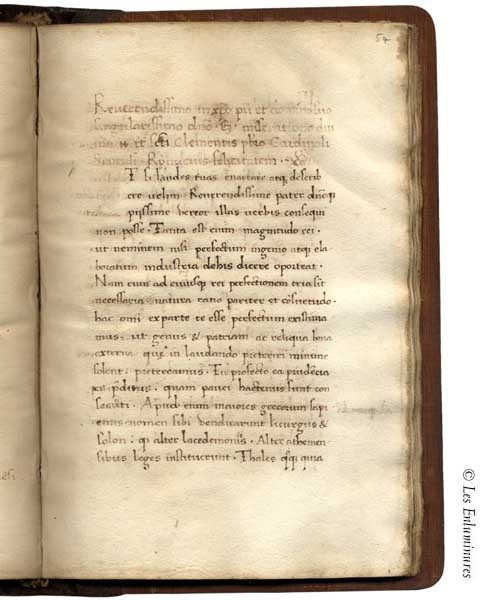 54
Reverendissimo in xpo pri et dno
singularissimo dno. miseratione diui
na tt. scti Clementis pbro Cardinali
Romanus felicitatem.
T si laudes tuas enarrare atq; describ
ere uelim Reuerendissime pater dneq;
piissime uereor illas uerbis consequi
non posse. Tanta est enim magnitudo rei.
ut neminem nisi perfectum ingenio atq; ela
boratum industria de his dicere oporteat.
Nam cum ad cuiusq; rei perfectionem tria sit
necessaria natura ratio pariter et cosuetudo.
hac omi ex parte te esse perfectum existima
mus. ut genus & patriam ac reliqua bona
externa. que in laudando preteriri minime
solent: pretereamus. Tu profecto ea prudecia
es preditus. quam pauci hactenus sunt con
secuti. Apud enim maiores grecorum sapi
entis nomen sibi uendicarunt licurgus &
solon: qr alter lacedemoniis. Alter athenien
sibus leges instituerunt. Thales quia
© Les Enluminures